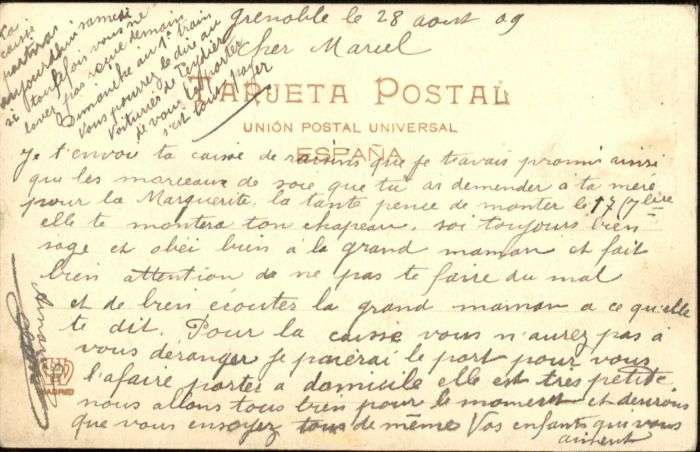 Grenoble le 28 aout 09
Cher Marcel
TARJETA POSTAL
UNIÓN POSTAL UNIVERSAL
ESPAÑA
Je t'envoi ta caisse de raisins que je t'avais promi ainsi
que les morceaux de soie que tu as demender a ta mère
pour la Marguerite. la tante pence de monter le 17 7bre
elle te montera ton chapeau. soi toujours bien
sage et obéi bien à la grand maman et fait
bien attention de ne pas te faire du mal
et de bien écouter la grand maman a ce qu'elle
te dit. Pour la caisse vous n'aurez pas à
vous déranger je paierai le port pour vous
l'afaire porter a domicile elle est très petite.
nous allons tous bien pour le moment et desirons
que vous ensoyez tous de même Vos enfants qui vous
aiment
La
caisse
partira
aujourdhui samedi
si toutefois vous ne
l'avez pas reçue demain
Dimanche au 1er train
vous pourrez le dire au
voituriés de
de vous la porter
s'est tout payer
MADRID